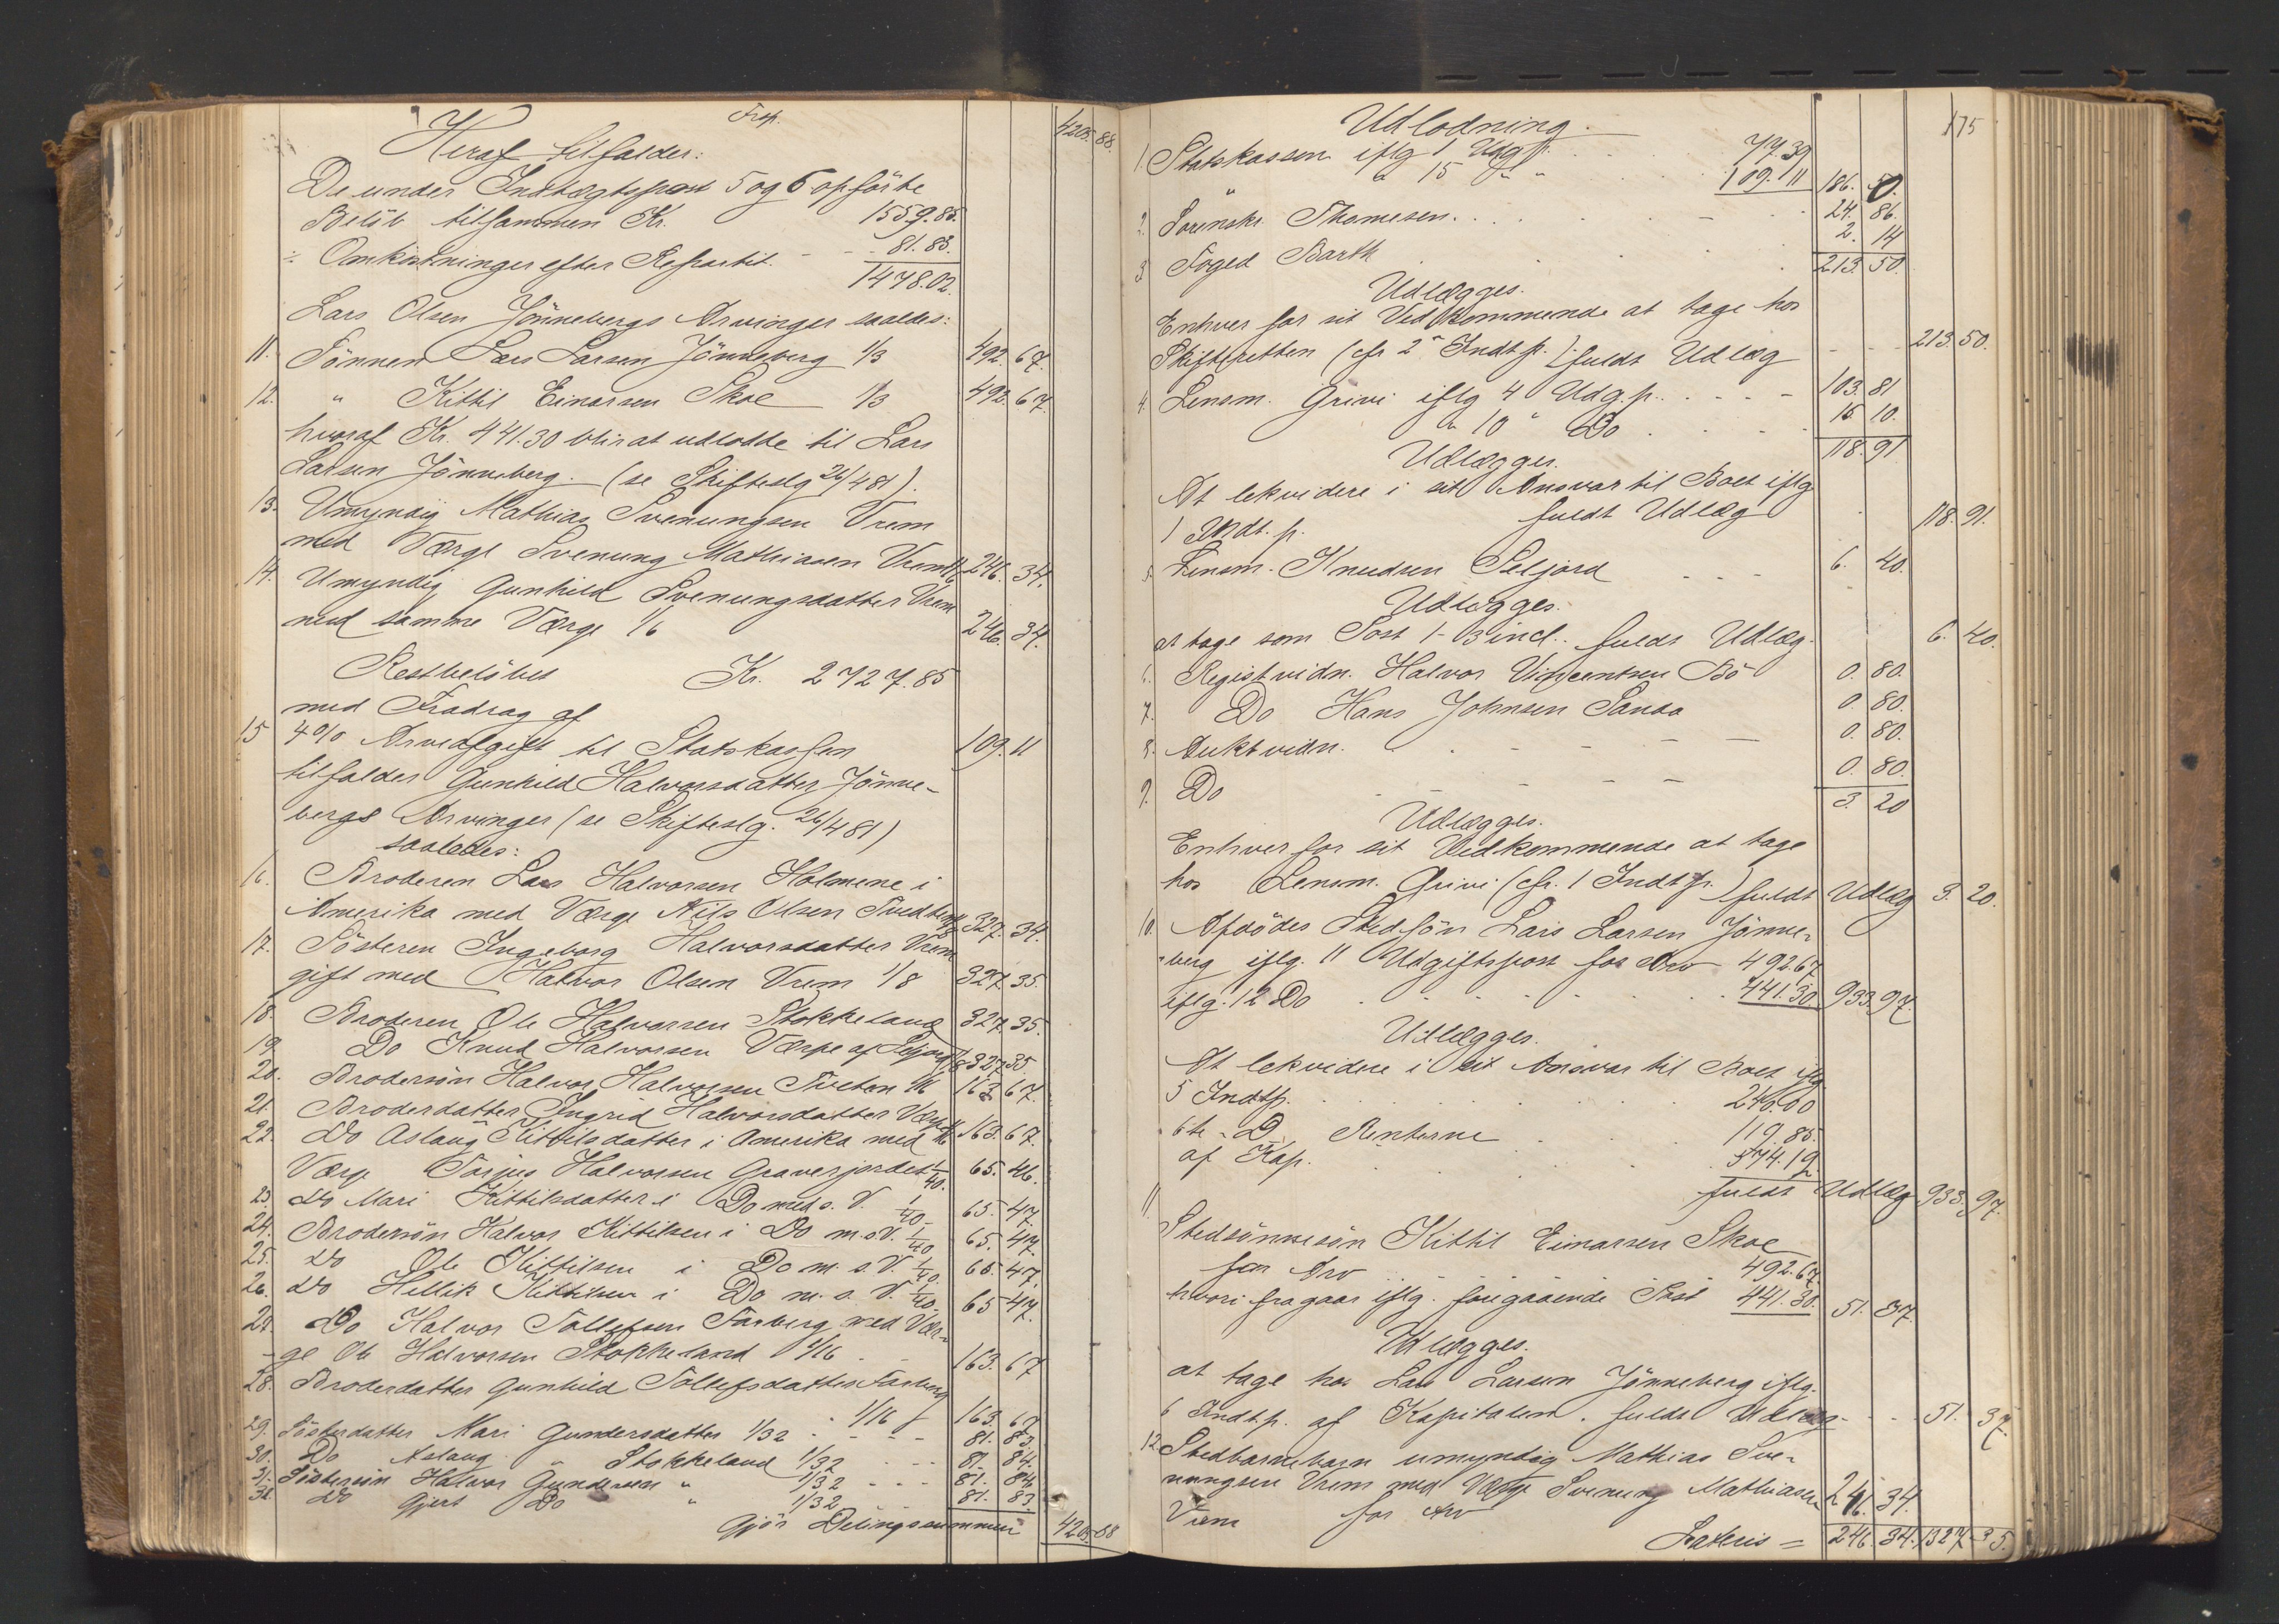 Trsp. 4205 88.
Heraf tilfalder:
De under Indtægtspost 5 og 6 opförte
Belöb tilsammen Kr. 1559.85.
÷ Omkostninger efter Repartit. - - 81.83.
1478.02.
Lars Olsen Jönnebergs Arvinger saaledes:
11. Sönnen Lars Larsen Jönneberg 1/3 492. 67.
12. " Kittil Einarsen Skoe 1/3 492. 67.
hvoraf Kr. 441.30 blir at udlodde til Lars
Larsen Jönneberg. (se Skifteslg 26/4 81).
13. Umyndig Mathias Svenungsen Vrem
med Værge Svenung Mathiasen Vrem 1/6 246. 34.
14. Umyndig Gunhild Svenungsdatter Vrem
med samme Værge 1/6 246. 34.
Restbelöbet Kr. 2727.85
med Fradrag af
15 4% Arveafgift til Statskassen 109. 11
tilfalder Gunhild Halvorsdatter Jönne-
bergs Arvinger (se Skifteslg. 26/4 81)
saaledes:
16. Broderen Lars Halvorsen Holmene i
Amerika med Værge Nils Olsen Tvedten 1/8 327. 34.
17. Sösteren Ingeborg Halvorsdatter Vrem
gift med Halvor Olsen Vrem 1/8 327. 35.
18. Broderen Ole Halvorsen Stokkeland 327. 35.
19 Do Knud Halvorsen Værpe af Seljord 1/8 327 35.
20. Brodersön Halvor Halvorsen Tveten 1/16 163 67.
21. Broderdatter Ingrid Halvorsdatter Værpe 1/16 163. 67.
22. Do Aslaug Kittilsdatter i Amerika med
Værge Torjus Halvorsen Graverjordet 1/40. 65. 46.
23 Do Mari Kittilsdatter i Do med s. V. 1/40. 65. 47.
24. Brodersön Halvor Kittilsen i Do m. s. V. 1/40. 65. 47.
25. Do Ole Kittilsen i Do m. s. V. 1/40. 65. 47.
26. Do Hellik Kittilsen i Do m. s. V. 1/40. 65 47.
27. Do Halvor Tollefsen Farberg med Vær-
ge Ole Halvorsen Stokkeland 1/16 163. 67
28. Broderdatter Gunhild Tollefsdatter Farberg
1/16 163. 67
29. Sösterdatter Mari Gundersdatter 1/32 - - - 81. 83.
30. Do Aslaug " Stokkeland 1/32 - - - 81. 84.
31. Söstersön Halvor Gundersen " 1/32 - - - 81. 84.
32. Do Gjert Do " 1/32 81. 83
Gjör Delingssummen 4205.88
175
Udlodning.
1. Statskassen iflg 1 Udg p. 77.39
" " 15 " " 109.11 186. 50.
2. Sorenskr. Thomesen. 24. 86.
3. Foged Barth 2. 14
213. 50.
Udlægges.
Enhver for sit Vedkommende at tage hos
Skifteretten (cfr 2. Indt p.) fuldt Udlæg - - - 213. 50.
4. Lensm. Grivi iflg 4 Udg. p. - - - - 103. 81
" 10 " Do 15 10.
118. 91
Udlægges.
At lekvidere i sit Ansvar til Boet iflg
1 Indt. p. fuldt Udlæg 118. 91.
5. Lensm. Knudsen Seljord - - - 6. 40.
Udlægges.
at tage som Post 1-3 incl. fuldt Udlæg. 6. 40.
6. Registvidn. Halvor Vincentsen Bö 0. 80.
7. Do Hans Johnsen Sanda 0. 80.
8. Auktvidn. - - - - 0. 80.
9. Do - - - 0. 80.
3. 20
Udlægges.
Enhver for sit Vedkommende at tage
hos Lensm. Grivi (cfr. 1 Indt p.) fuldt Udlæg 3. 20.
10. Afdödes Stedsön Lars Larsen Jönne-
berg iflg. 11 Udgiftspost for Arv 492.67
iflg. 12 Do 441.30. 933. 97.
Udlægges.
At lekvidere i sit Ansvar til Boet iflg
5 Indtp. 240.00
6te " D. Renterne 119.85.
af Kap. 574.12
fuldt Udlæg 933. 97.
11. Stedsönnesön Kittil Einarsen Skoe
for Arv 492.67.
hvori fragaar iflg. foregaaende Post 441.30. 51. 37.
Udlægges.
at tage hos Lars Larsen Jönneberg iflg.
6 Indt.p. af Kapitalen. fuldt Udlæg - - - 51. 37.
12. Stedbarnebarn umyndig Mathias Sve-
nungsen Vrem med Værge Svenung Mathiasen
Vrem for Arv 246. 34.
Lateris = 246. 34. 1327. 35.